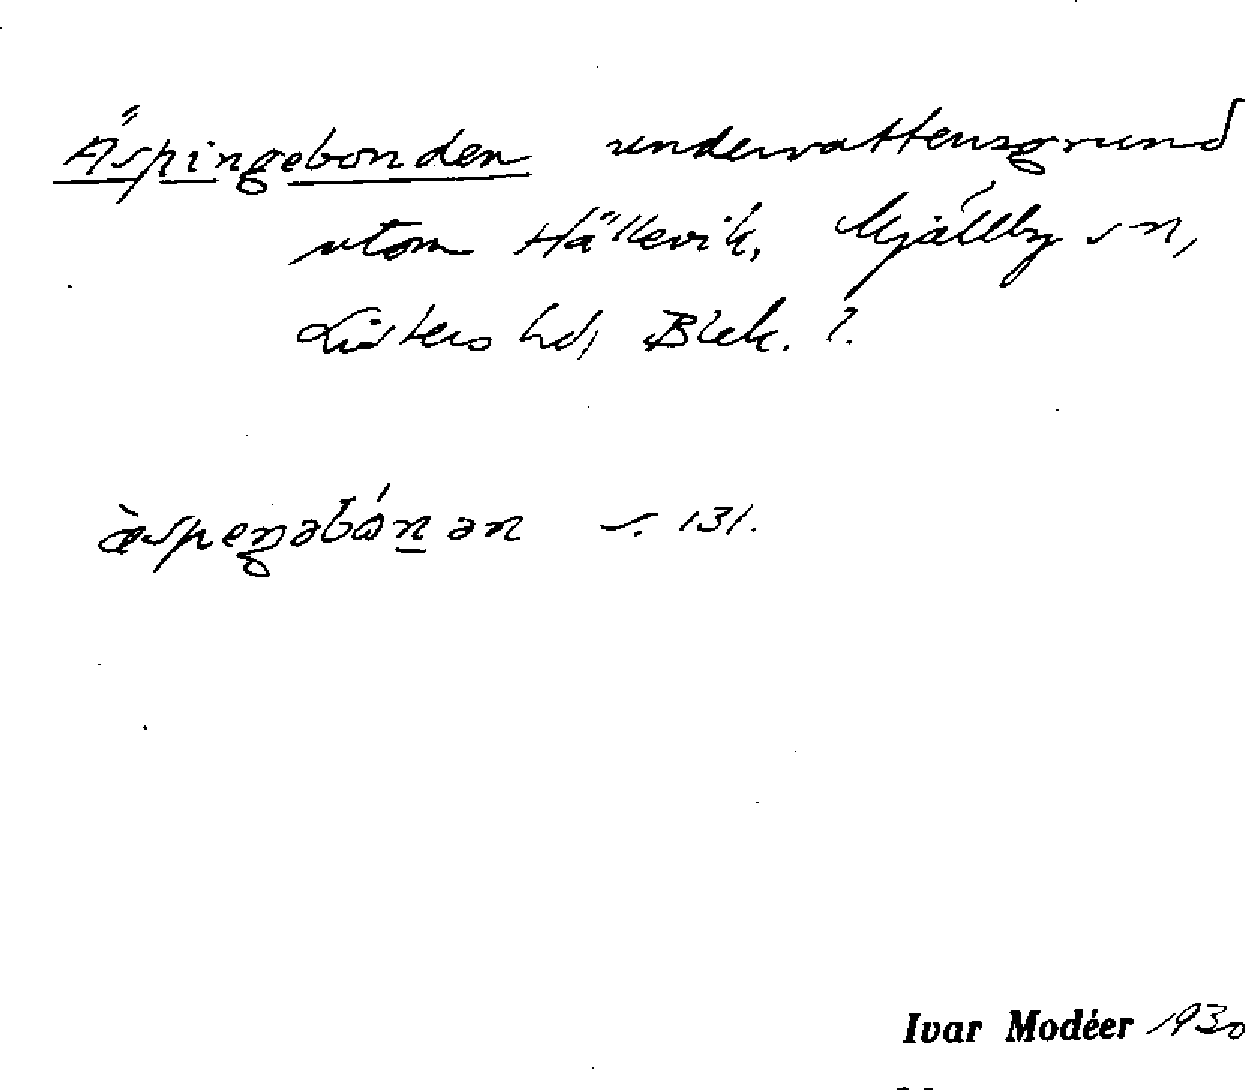 Äspingebonden undervattensgrund
utom Hällevik, Mjällby sn,
Listers hd, Blek. ?.
æ̀speŋəbónən s. 131.
Ivar Modéer 1930